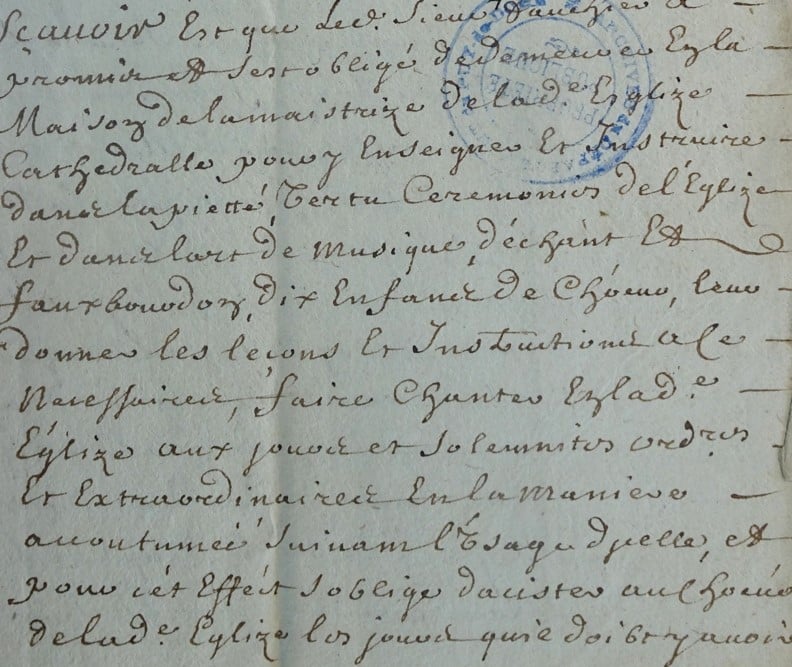 Scavoir Est que led. Sieur
promis et sest obligé de demeurer En la
Maison de la maistrize de lad.e Esglize
Cathedralle pour y Enseigner Et Instruire
dans la pietté, Vertu Ceremonies de l'Eglize
Et dans lart de Musique, déchant Et
fauxbourdon, dix Enfans de Chœur, leur
donner les leçons Et Instructions a ce
Necessaires, faire Chanter En lad.e
Eglize aux jours et solemnites ordres
Et Extraordinaires En la Maniere
accoutumée Suivant l'Vsage dycelle, et
pour cét Efféct soblige dacister au Chœur
de lad.e Eglize les jours quil doibt y avoir
ARCHIVES